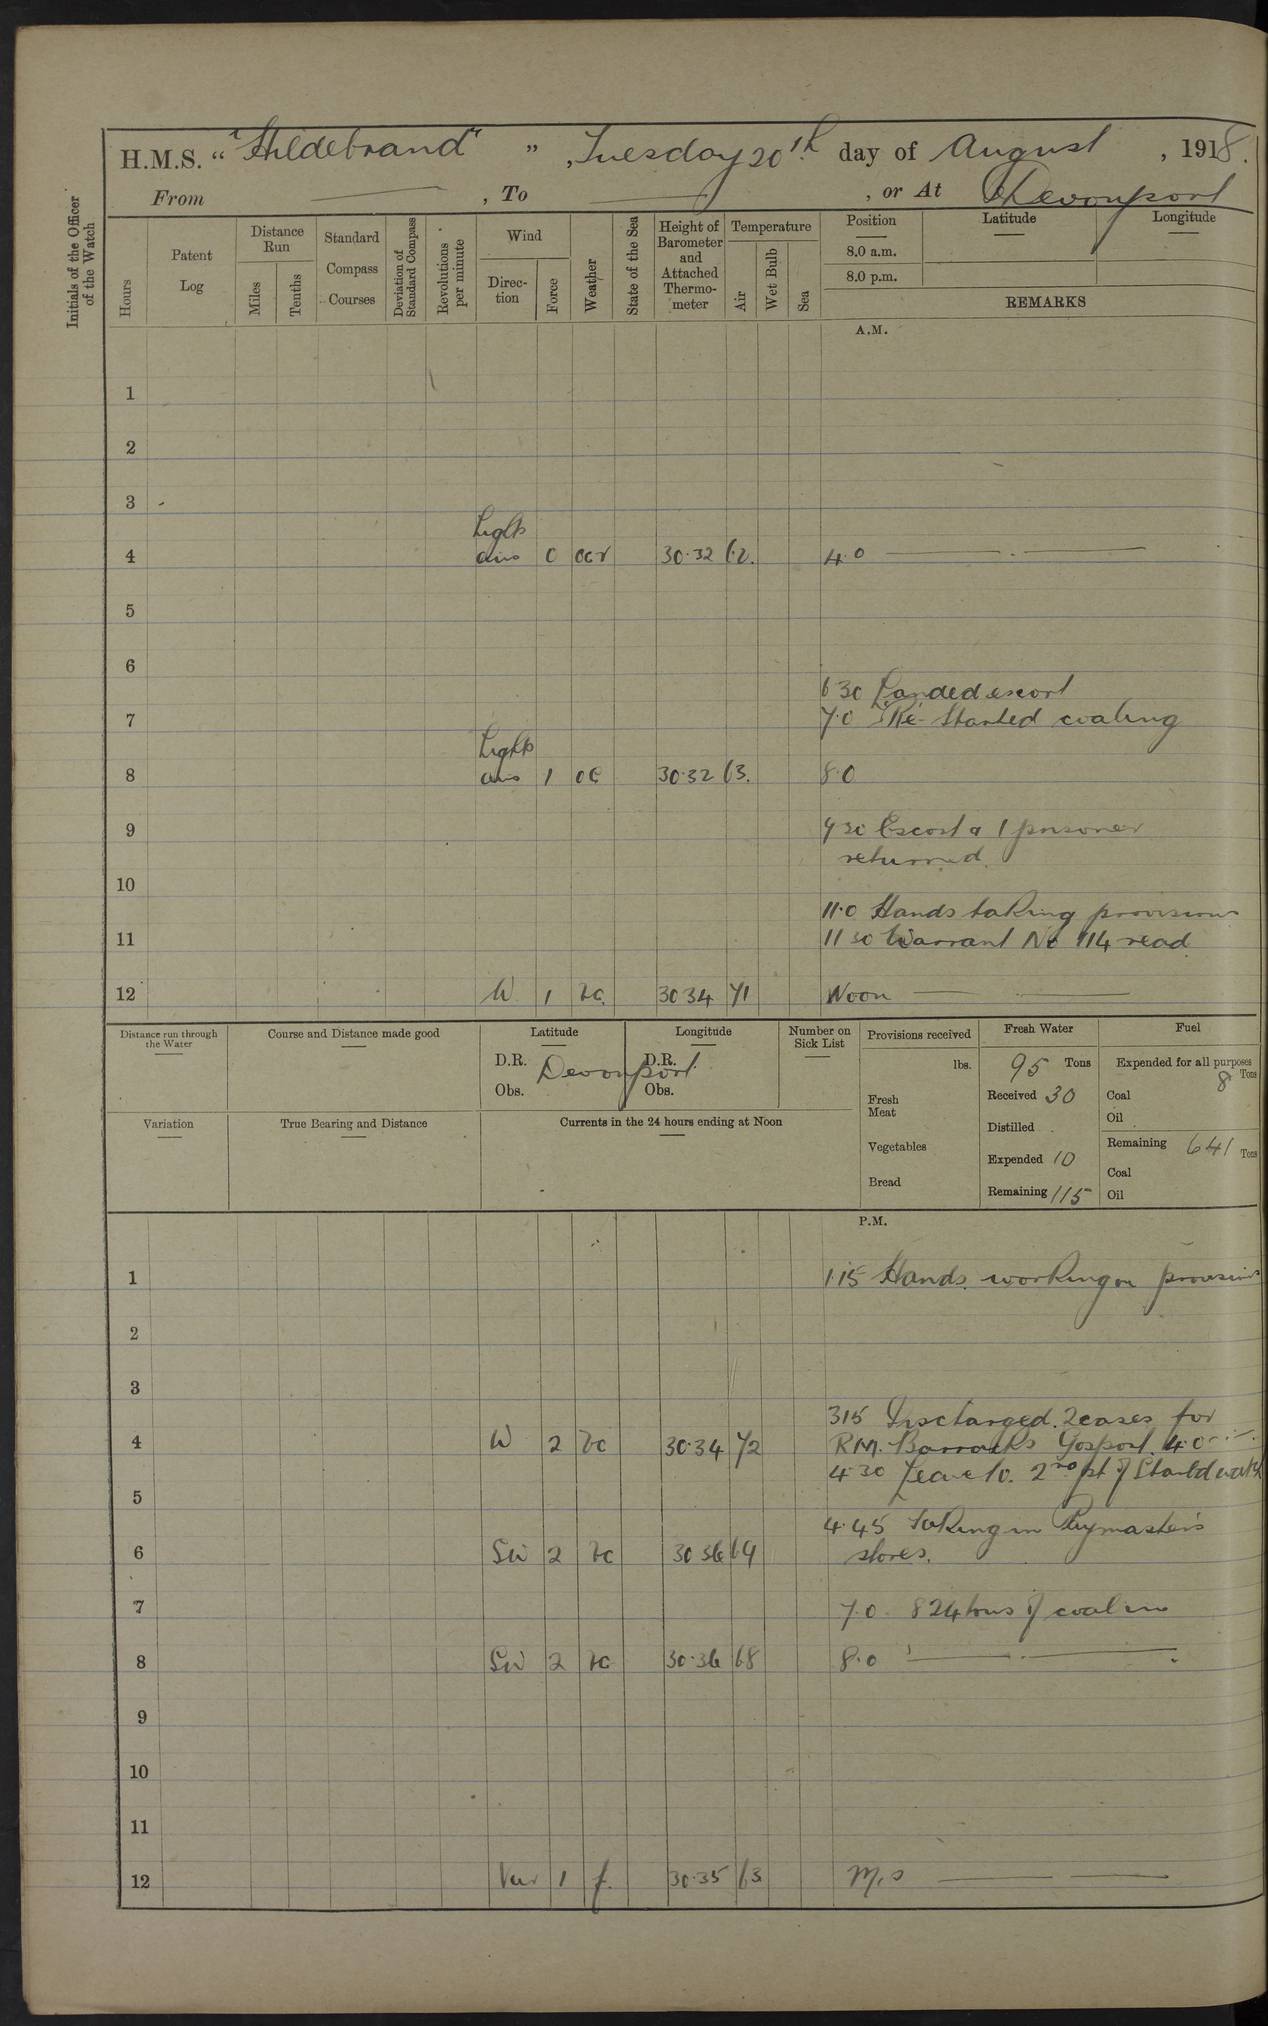 H.M.S. "Hildebrand" ", Tuesday 20th day of August, 1918.
From , To , or At Devonport
Initials of the Officer of the Watch
Hours
Patent Log
Distance Run
Miles
Tenths
Standard Compass Courses
Deviation of Standard Compass
Revolutions per minute
Wind
Direction
Force
Weather
State of the Sea
Height of Barometer and Attached Thermometer
Temperature
Air
Wet Bulb
Sea
Position
8.0 a.m.
8.0 p.m.
Latitude
Longitude
REMARKS
A.M.
1
2
3
Light
4 airs 0 ocr 30.32 62. 4.0
5
6
6 30 Landed escort
7 7.0 Re-Started coaling
Light
8 airs 1 oc 30.32 63. 8.0
9 9 30 Escort & 1 prisoner
returned.
10
11.0 Hands taking provisions
11 11 30 Warrant No 114 read
12 W 1 bc. 30 34 71 Noon
Distance run through the Water
Course and Distance made good
Latitude
D.R. Devonport
Obs.
Longitude
D.R.
Obs.
Number on Sick List
Provisions received
lbs.
Fresh Meat
Vegetables
Bread
Fresh Water
95 Tons
Received 30
Distilled
Expended 10
Remaining 115
Fuel
Expended for all purposes
8 Tons
Coal
Oil
Remaining 641 Tons
Coal
Oil
Variation
True Bearing and Distance
Currents in the 24 hours ending at Noon
P.M.
1 1 15 Hands working on provisions
2
3
3 15 Discharged 2 cases for
4 W 2 bc 30.34 72 R.M. Barracks Gosport. 4.0
4.30 Leave to 2nd pt of Starbd watch
5
4.45 Taking in Paymaster's
6 SW 2 bc 30 36 69 stores.
7 7.0. 824 tons of coal in
8 SW 2 bc 30.36 68 8.0
9
10
11
12 Var 1 f. 30.35 63 M.